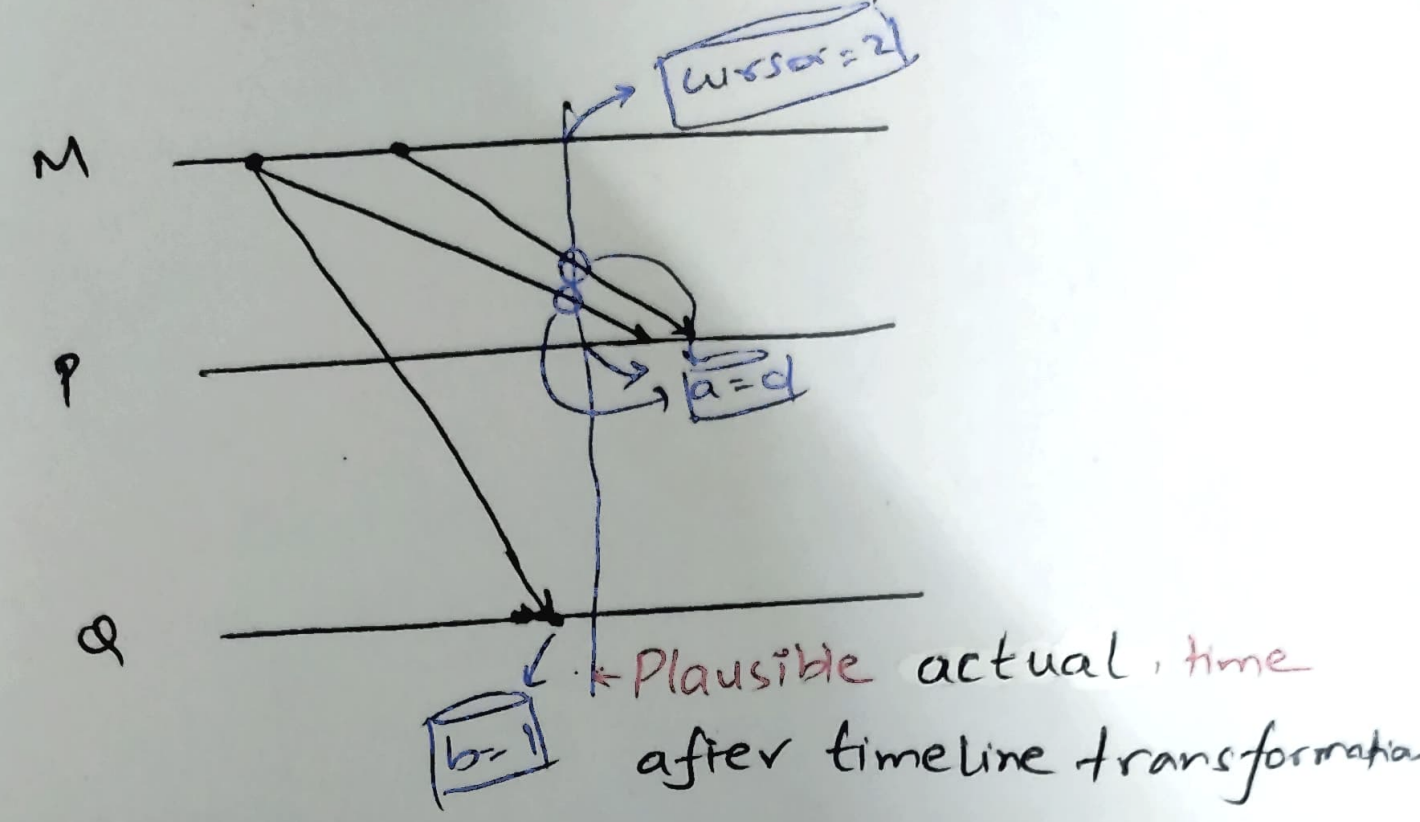 cursor=2
M
P
a=d
Q
Plausible actual time
b=1
after timeline transformation